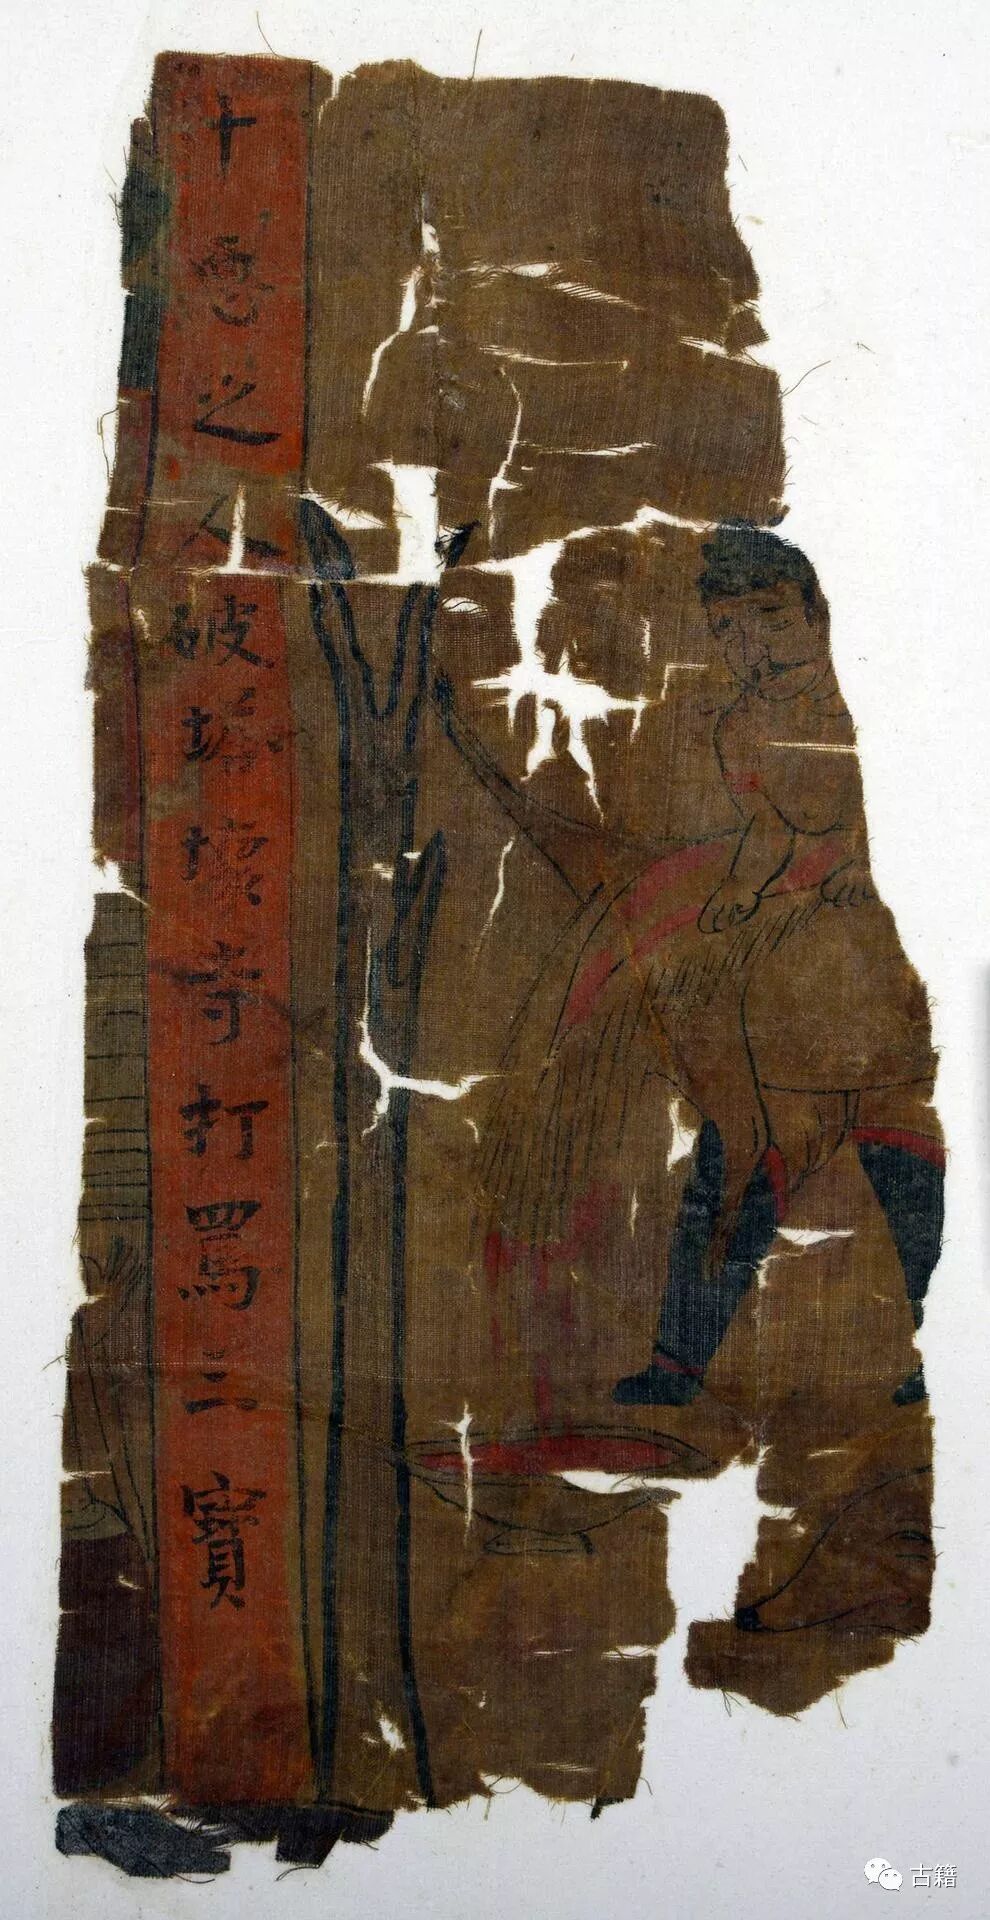 十惡之人破塔壞寺打罵三寶
古籍